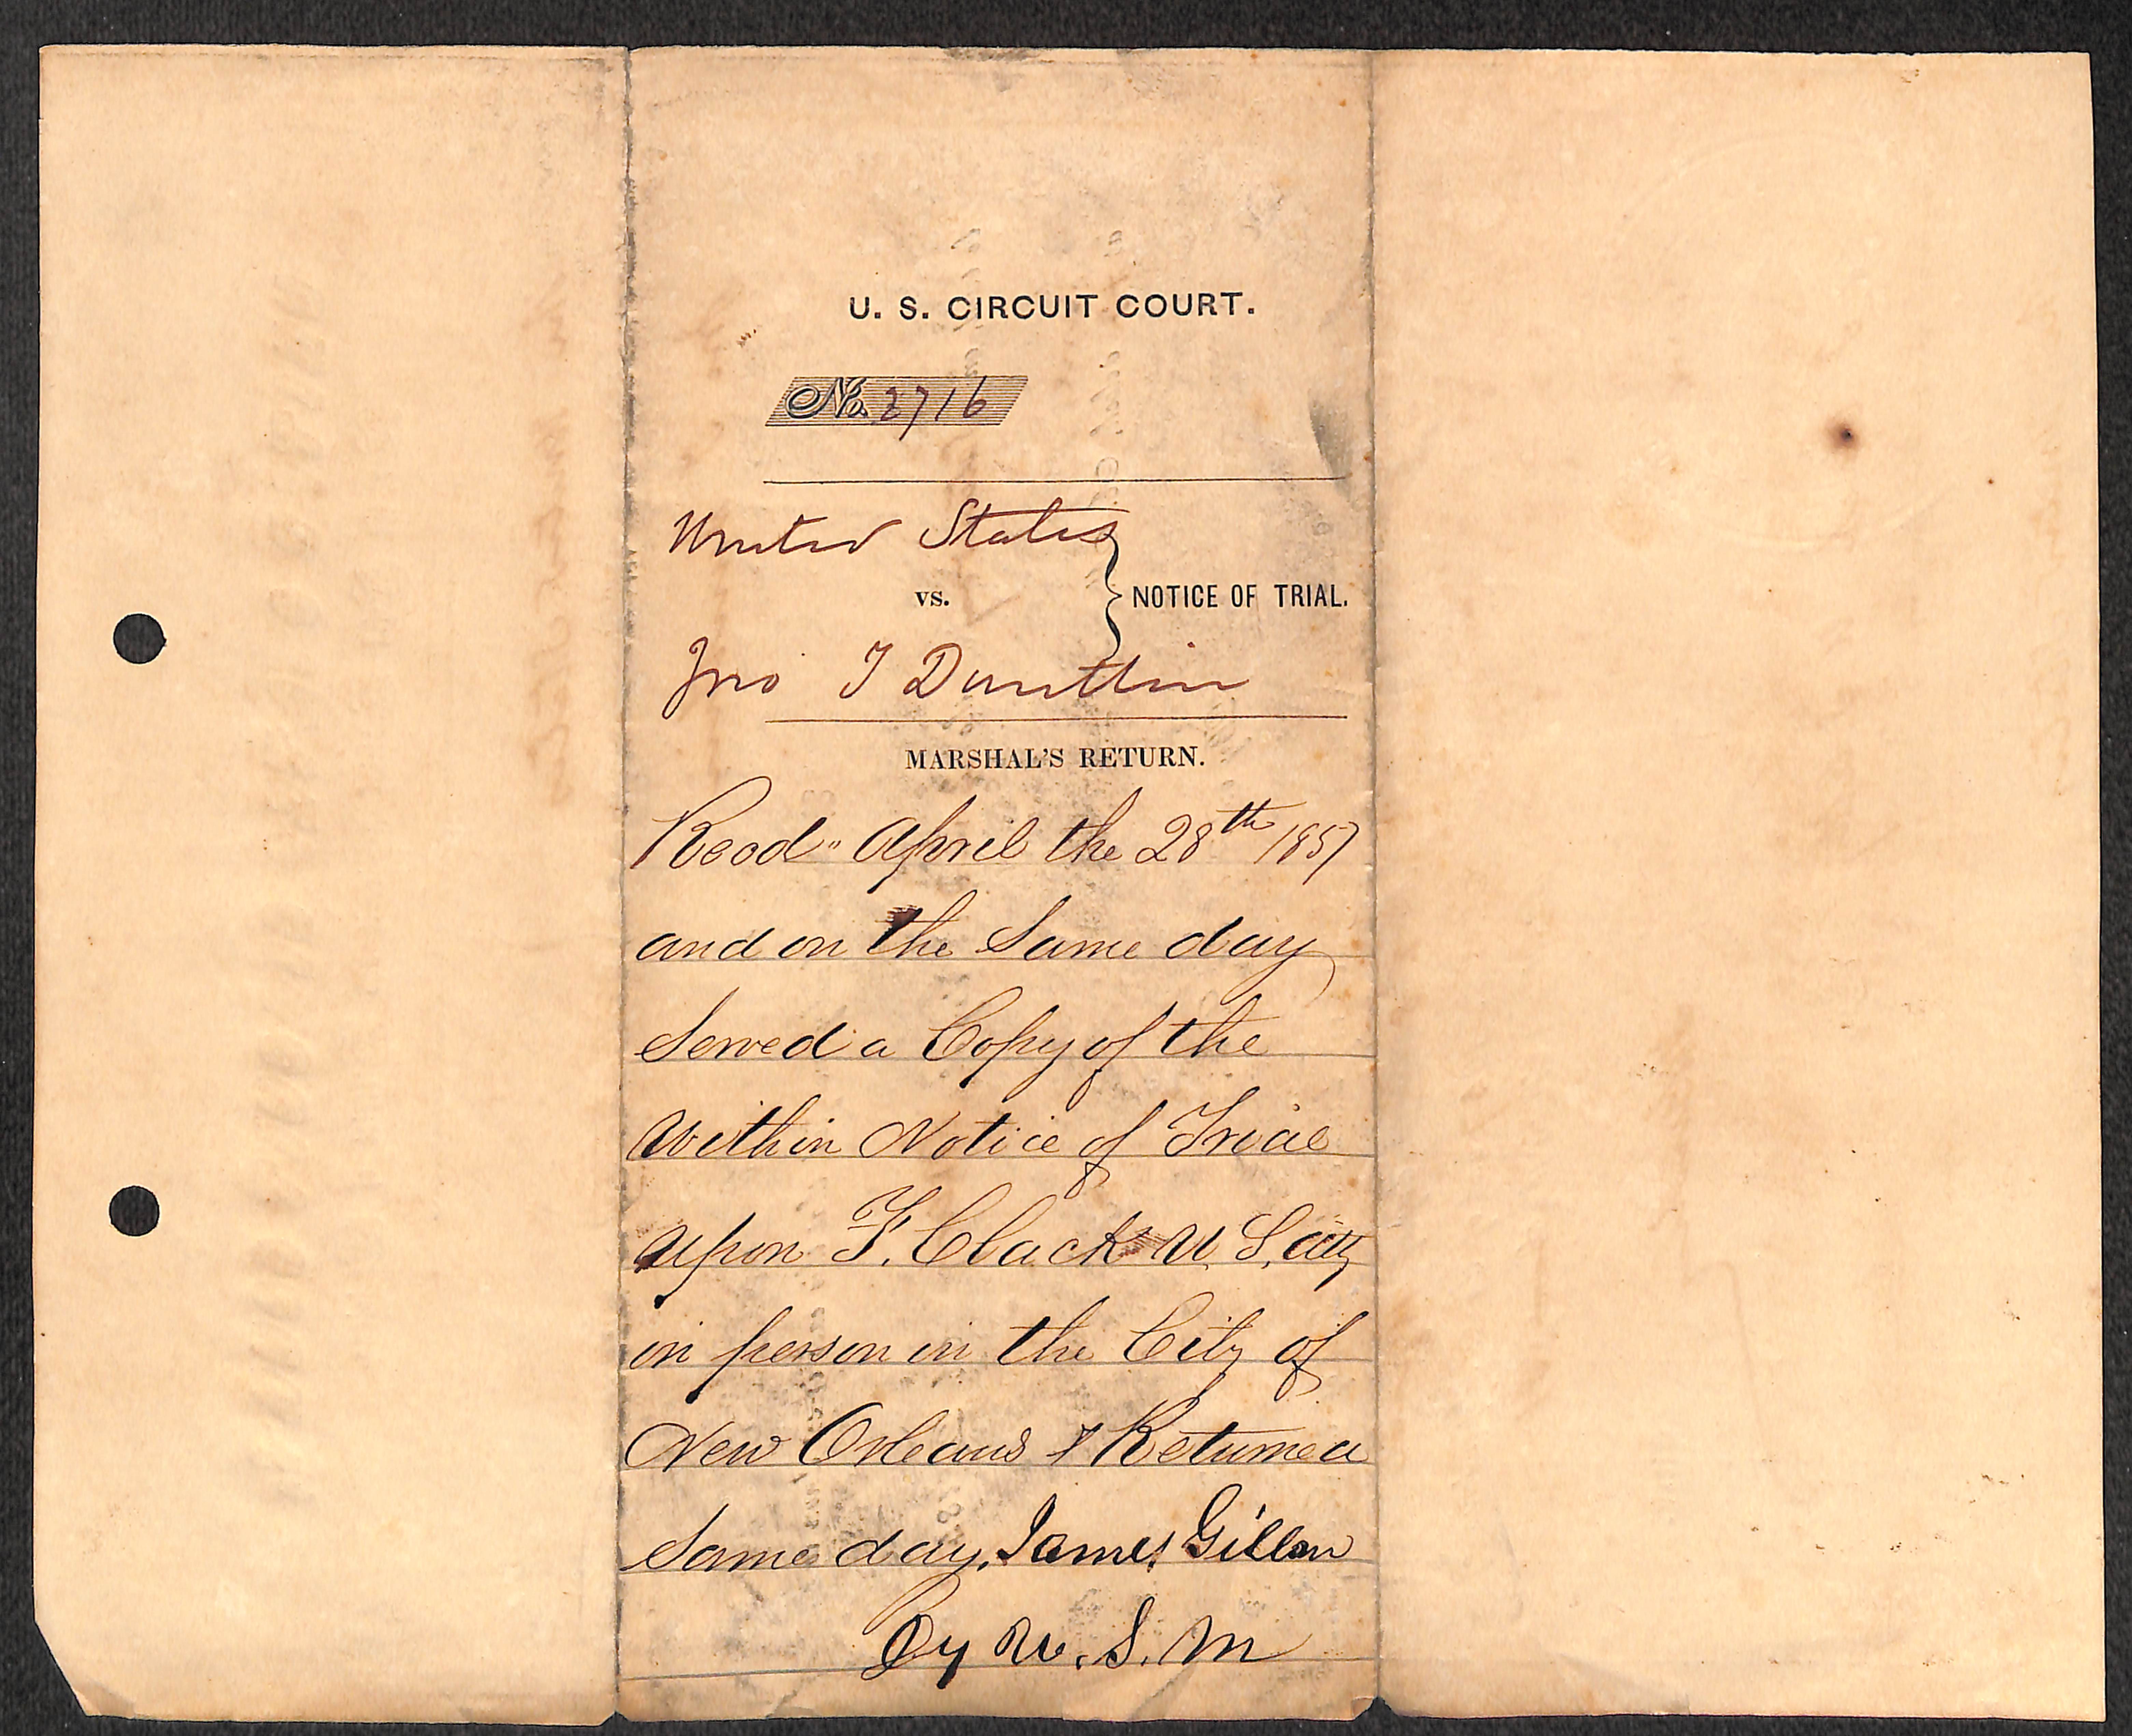 U. S. CIRCUIT COURT.
No. 2716
United States
vs. } NOTICE OF TRIAL.
Jno T Dunttin
MARSHAL'S RETURN.
Recd" April the 28th 1857
and on the Same day
Served a Copy of the
Within Notice of Trial
upon F. Clack U. S. atty
in person in the City of
New Orleans & Returned
Same day, James Gillon
Dy U. S. M